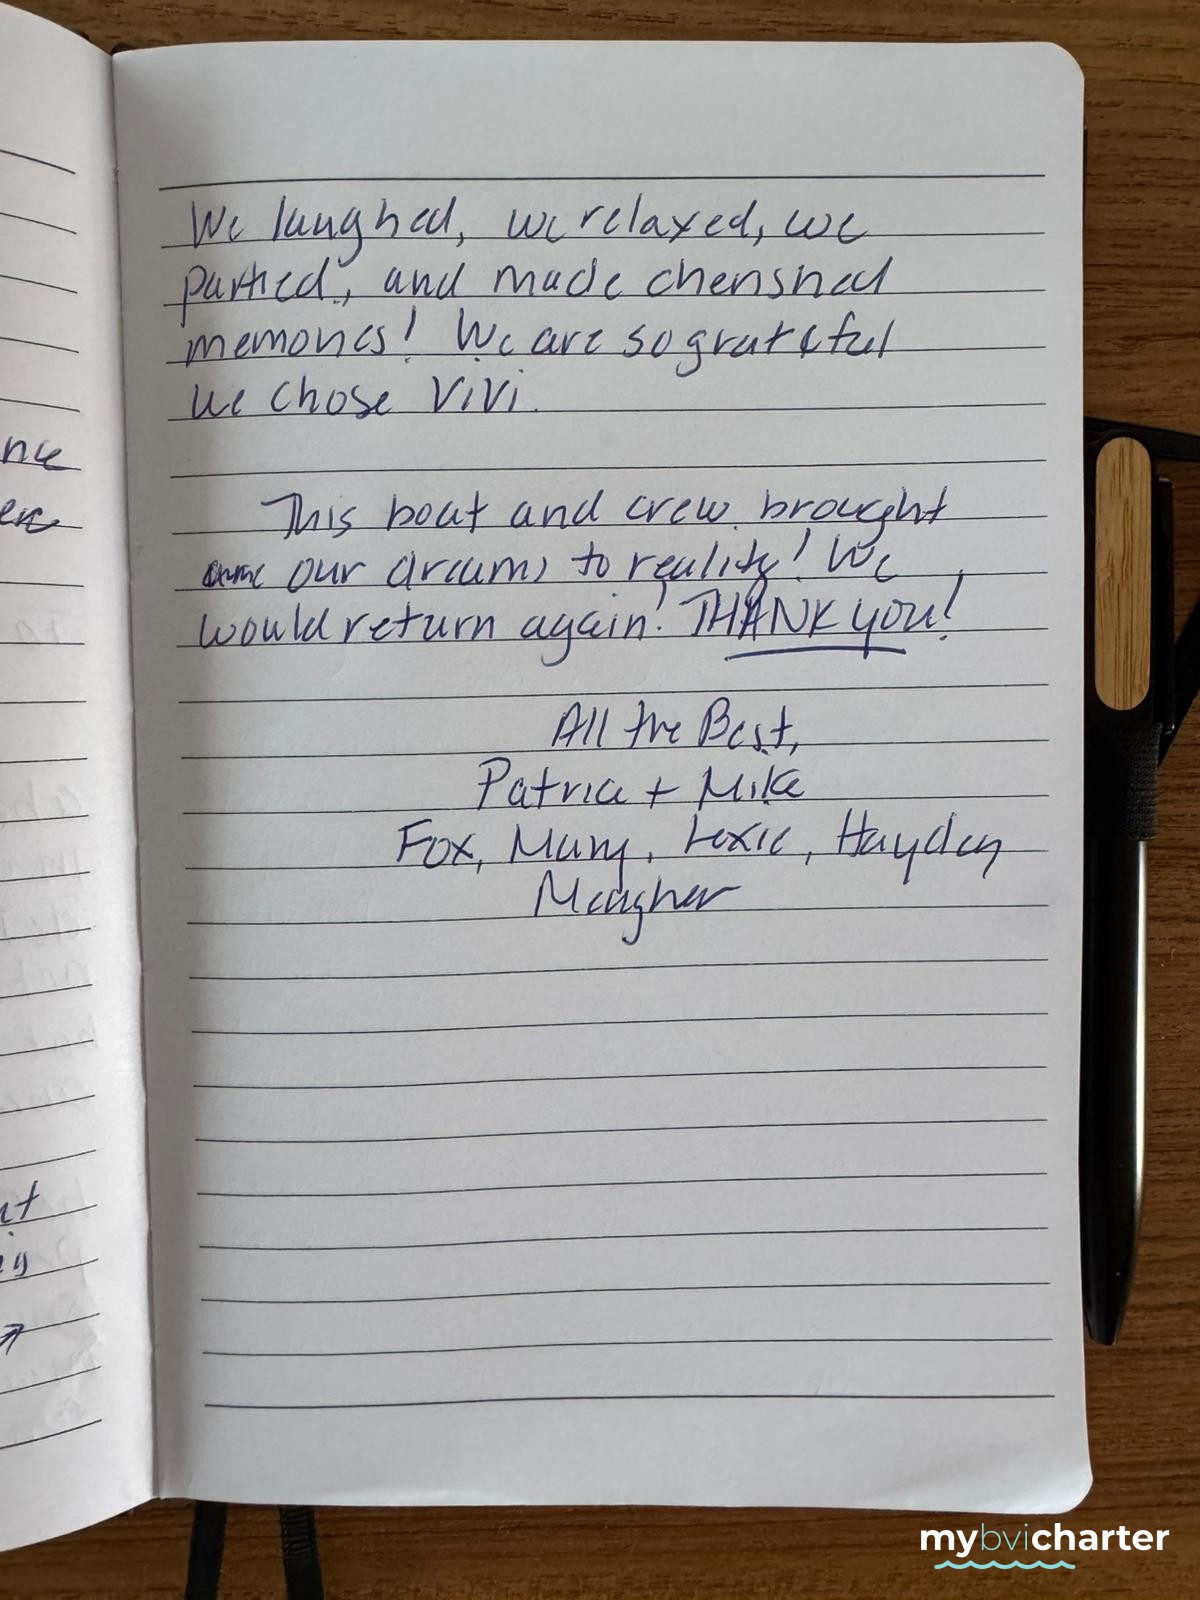 nce
We laughed, we relaxed, we
partied, and made cherished
memories! We are so grateful
we chose ViVi.
This boat and crew brought
our dreams to reality! We
would return again! THANK YOU!
All the Best,
Patrice + Mike
Fox, Many, Lexie, Hayden
Meagher
mybvicharter